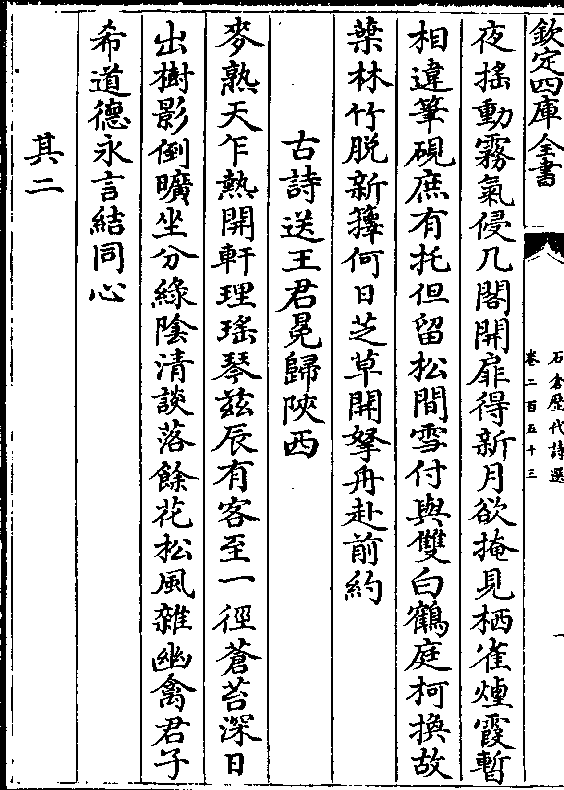 欽定四庫全書
石倉歴代詩選
卷二百五十三
一
夜揺動霧氣侵几閣開扉得新月欲掩見栖雀煙霞暫
相違筆硯庶有托但留松間雪付與雙白鶴庭柯換故
葉林竹脱新籜何日芝草開拏舟赴前約
古詩送王君冕歸陝西
麥熟天乍熱開軒理瑤琴兹辰有客至一徑蒼苔深日
出樹影倒曠坐分緑陰清談落餘花松風雜幽禽君子
希道德永言結同心
其二